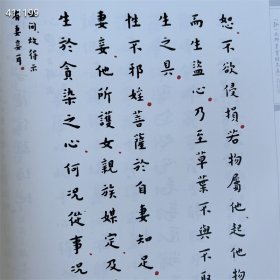 恕不欲侵損若物屬他起他物
而生盜心乃至草葉不與不取
生之具
性不邪婬菩薩於自妻知足
妻妾他所護女親族媒定及
生於貪染之心何況從事況
間故得示
妻妾